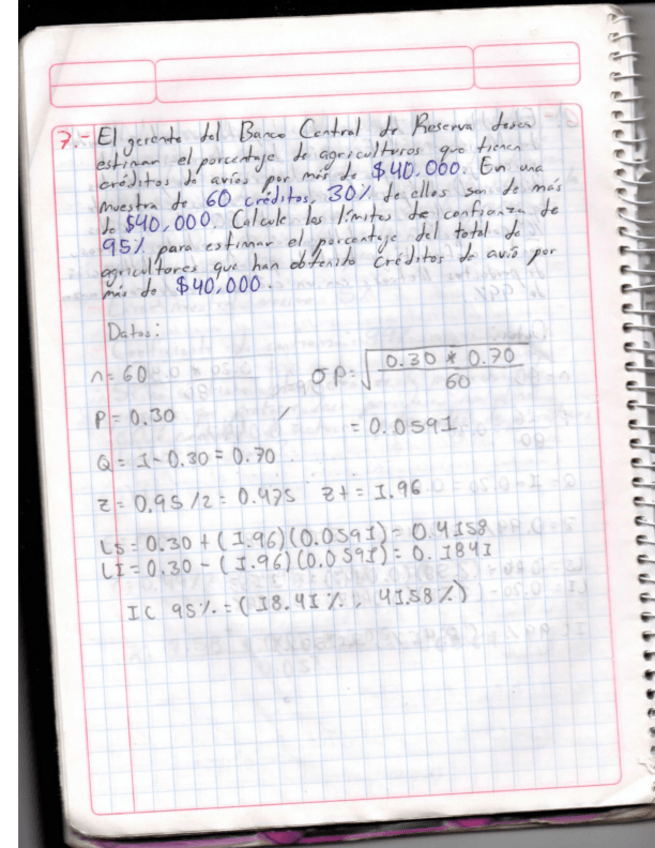 7.- El gerente del Banco Central de Reserva desea
estimar el porcentaje de agricultores que tienen
créditos de avíos por más de $40,000. En una
muestra de 60 créditos, 30% de ellos son de más
de $40,000. Calcule los límites de confianza de
95% para estimar el porcentaje del total de
agricultores que han obtenido créditos de avío por
más de $40,000.
Datos:
n = 60
σp = √(0.30 * 0.70 / 60)
P = 0.30
= 0.0591
Q = 1 - 0.30 = 0.70
z = 0.95 /2 = 0.475 zt = 1.96
LS = 0.30 + (1.96)(0.0591) = 0.4158
LI = 0.30 - (1.96)(0.0591) = 0.1841
IC 95% = (18.41%, 41.58%)